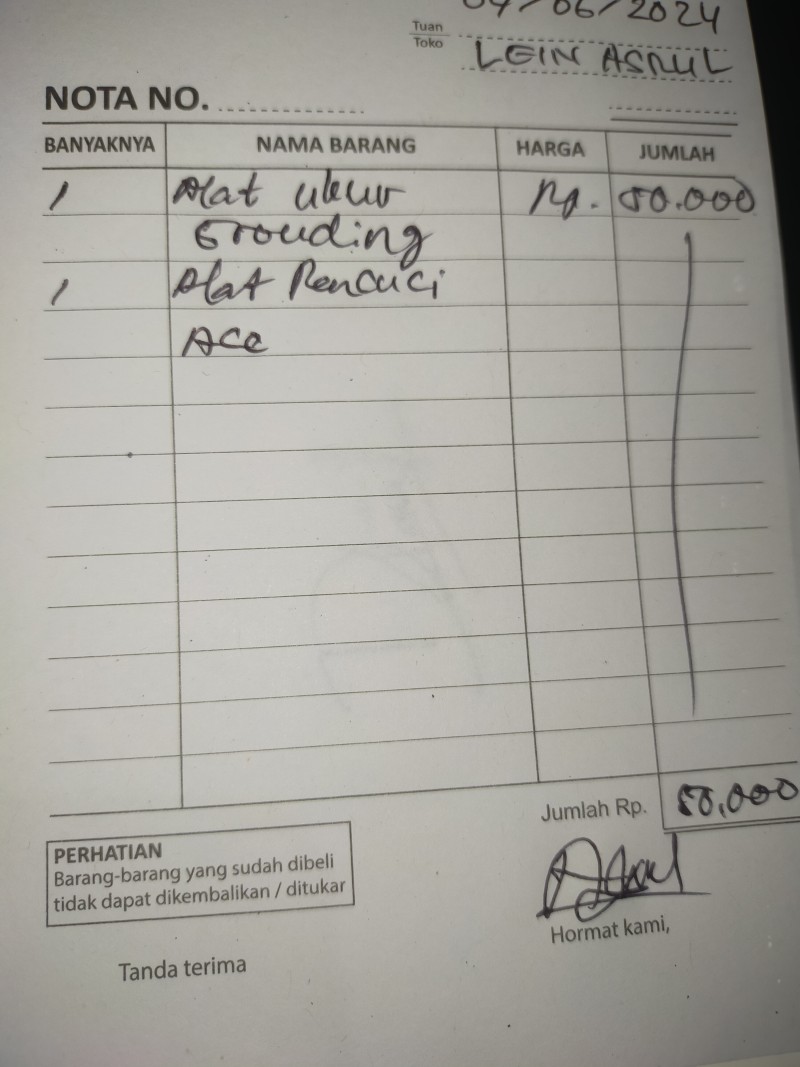 04/06/2024
Tuan
Toko
LEIN ASRUL
NOTA NO.
BANYAKNYA NAMA BARANG HARGA JUMLAH
1 Alat ukur Rp. 50.000
Grouding
1 Alat Pencuci
Ace
Jumlah Rp. 50,000
PERHATIAN
Barang-barang yang sudah dibeli
tidak dapat dikembalikan / ditukar
Hormat kami,
Tanda terima